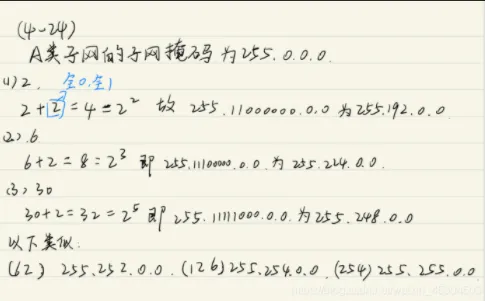 (4-24)
A类子网的子网掩码为255.0.0.0.
(1) 2. 全0.全1
2+2=4=2² 故 255.11000000.0.0 为255.192.0.0.
(2).6
6+2=8=2³ 即 255.11100000.0.0.为 255.224.0.0.
(3).30
30+2=32=2⁵ 即 255.11111000.0.0.为255.248.0.0
以下类似.
(62) 255.252.0.0. (126)255.254.0.0. (254)255.255.0.0.